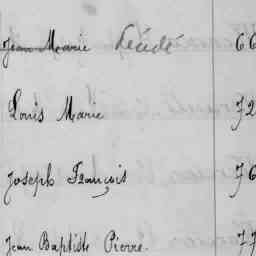 Jean Marie Décédé 66
Louis Marie 72
Joseph François 76
Jean Baptiste Pierre. 77